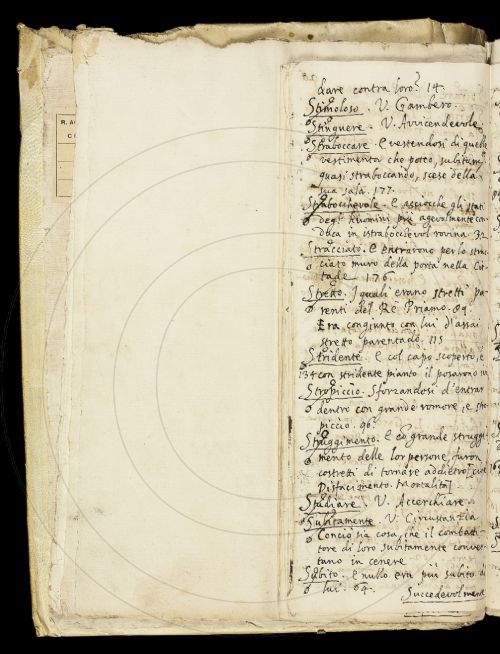 R. AC
C
dare contra loro. 14.
Stimoloso. V. Gambero.
Stinguere. V. Avvicendevole.
Straboccare. E vestendosi di quelle
vestimenta che poteo, subitam.
quasi straboccando, scese della
sua sala. 177.
Strabocchevole. E acciocche gli stati
degl' huomini più agevolmente con-
duca in istrabocchevol rovina. 32.
Stracciato. E entrarono per lo strac-
ciato muro della porta nella Cit-
tade 176.
Stretto. I quali erano stretti pa-
renti del Re Priamo. 89.
Era congiunto con lui d'assai
stretto parentado. 115
Stridente. E col capo scoperto, e
134 con stridente pianto il posarono in
Stropiccio. Sforzandosi d'entrar
dentro con grande romore, e stro-
piccio. 96.
Struggimento. E co grande struggi-
mento delle lor persone, furon
costretti di tornare addietro [cioè
Disfacimento. Mortalità].
Studiare. V. Accerchiare.
Subitamente. V. Circustanzia
Conciò sia cosa, che il combatti-
tore di loro subitamente conver-
tano in cenere
Subito. E nullo era più subito di
lui. 64.
Succedevolmente